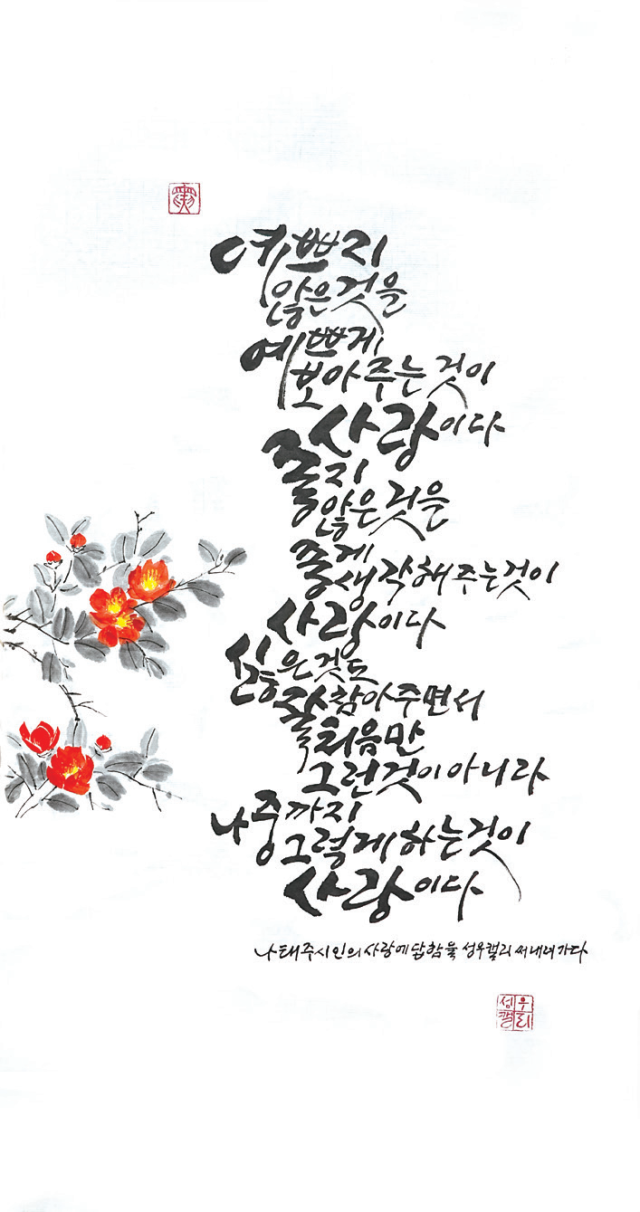 예쁘지
않은것을
예쁘게
보아주는것이
사랑이다
좋지
않은것을
좋게
생각해주는것이
사랑이다
싫은것도
잘참아주면서
처음만
그런것이아니라
나중까지
그렇게하는것이
사랑이다
나태주시인의 사랑에답함을 성우캘리 써내려가다
성우
캘리